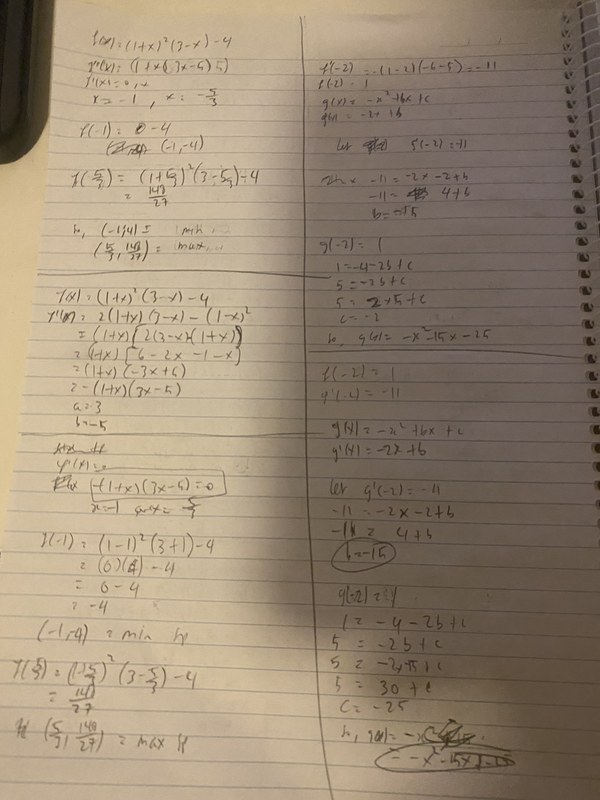 f(x) = (1+x)²(3-x) - 4
x = -1, x = -5/3
f(-1) = 0 - 4
(-1, -4)
f(5/3) = (1+5/3)²(3-5/3) - 4
= 148/27
(5/3, 148/27) = max
f(x) = (1+x)²(3-x) - 4
f'(x) = 2(1+x)(3-x) - (1-x)²
= (1+x)[2(3-x)(1+x)]
= (1+x)[6 - 2x - 1 - x]
= (1+x)(-3x+6)
= -(1+x)(3x-5)
a = 3
b = -5
f'(x) = 0
-(1+x)(3x-5) = 0
x = -1 x = 5/3
f(-1) = (1-1)²(3+1) - 4
= (0)(4) - 4
= 0 - 4
= -4
(-1, -4) = min tp
f(5/3) = (1+5/3)²(3-5/3) - 4
= 148/27
(5/3, 148/27) = max tp
f'(-2) = -(1-2)(-6-5) = -11
f(-2) = 1
g(x) = -x² + bx + c
g'(x) = -2x + b
let g'(-2) = -11
-11 = -2x-2+b
-11 = 4+b
b = -15
g(-2) = 1
1 = -4-2b+c
5 = -2b+c
g(x) = -x² - 15x - 25
f(-2) = 1
g'(-2) = -11
g(x) = -x² + bx + c
g'(x) = -2x + b
let g'(-2) = -11
-11 = -2x-2+b
4+b
b = -15
1 = -4-2b+c
5 = -2b+c
5 = 30+c
c = -25
-x²-15x-25